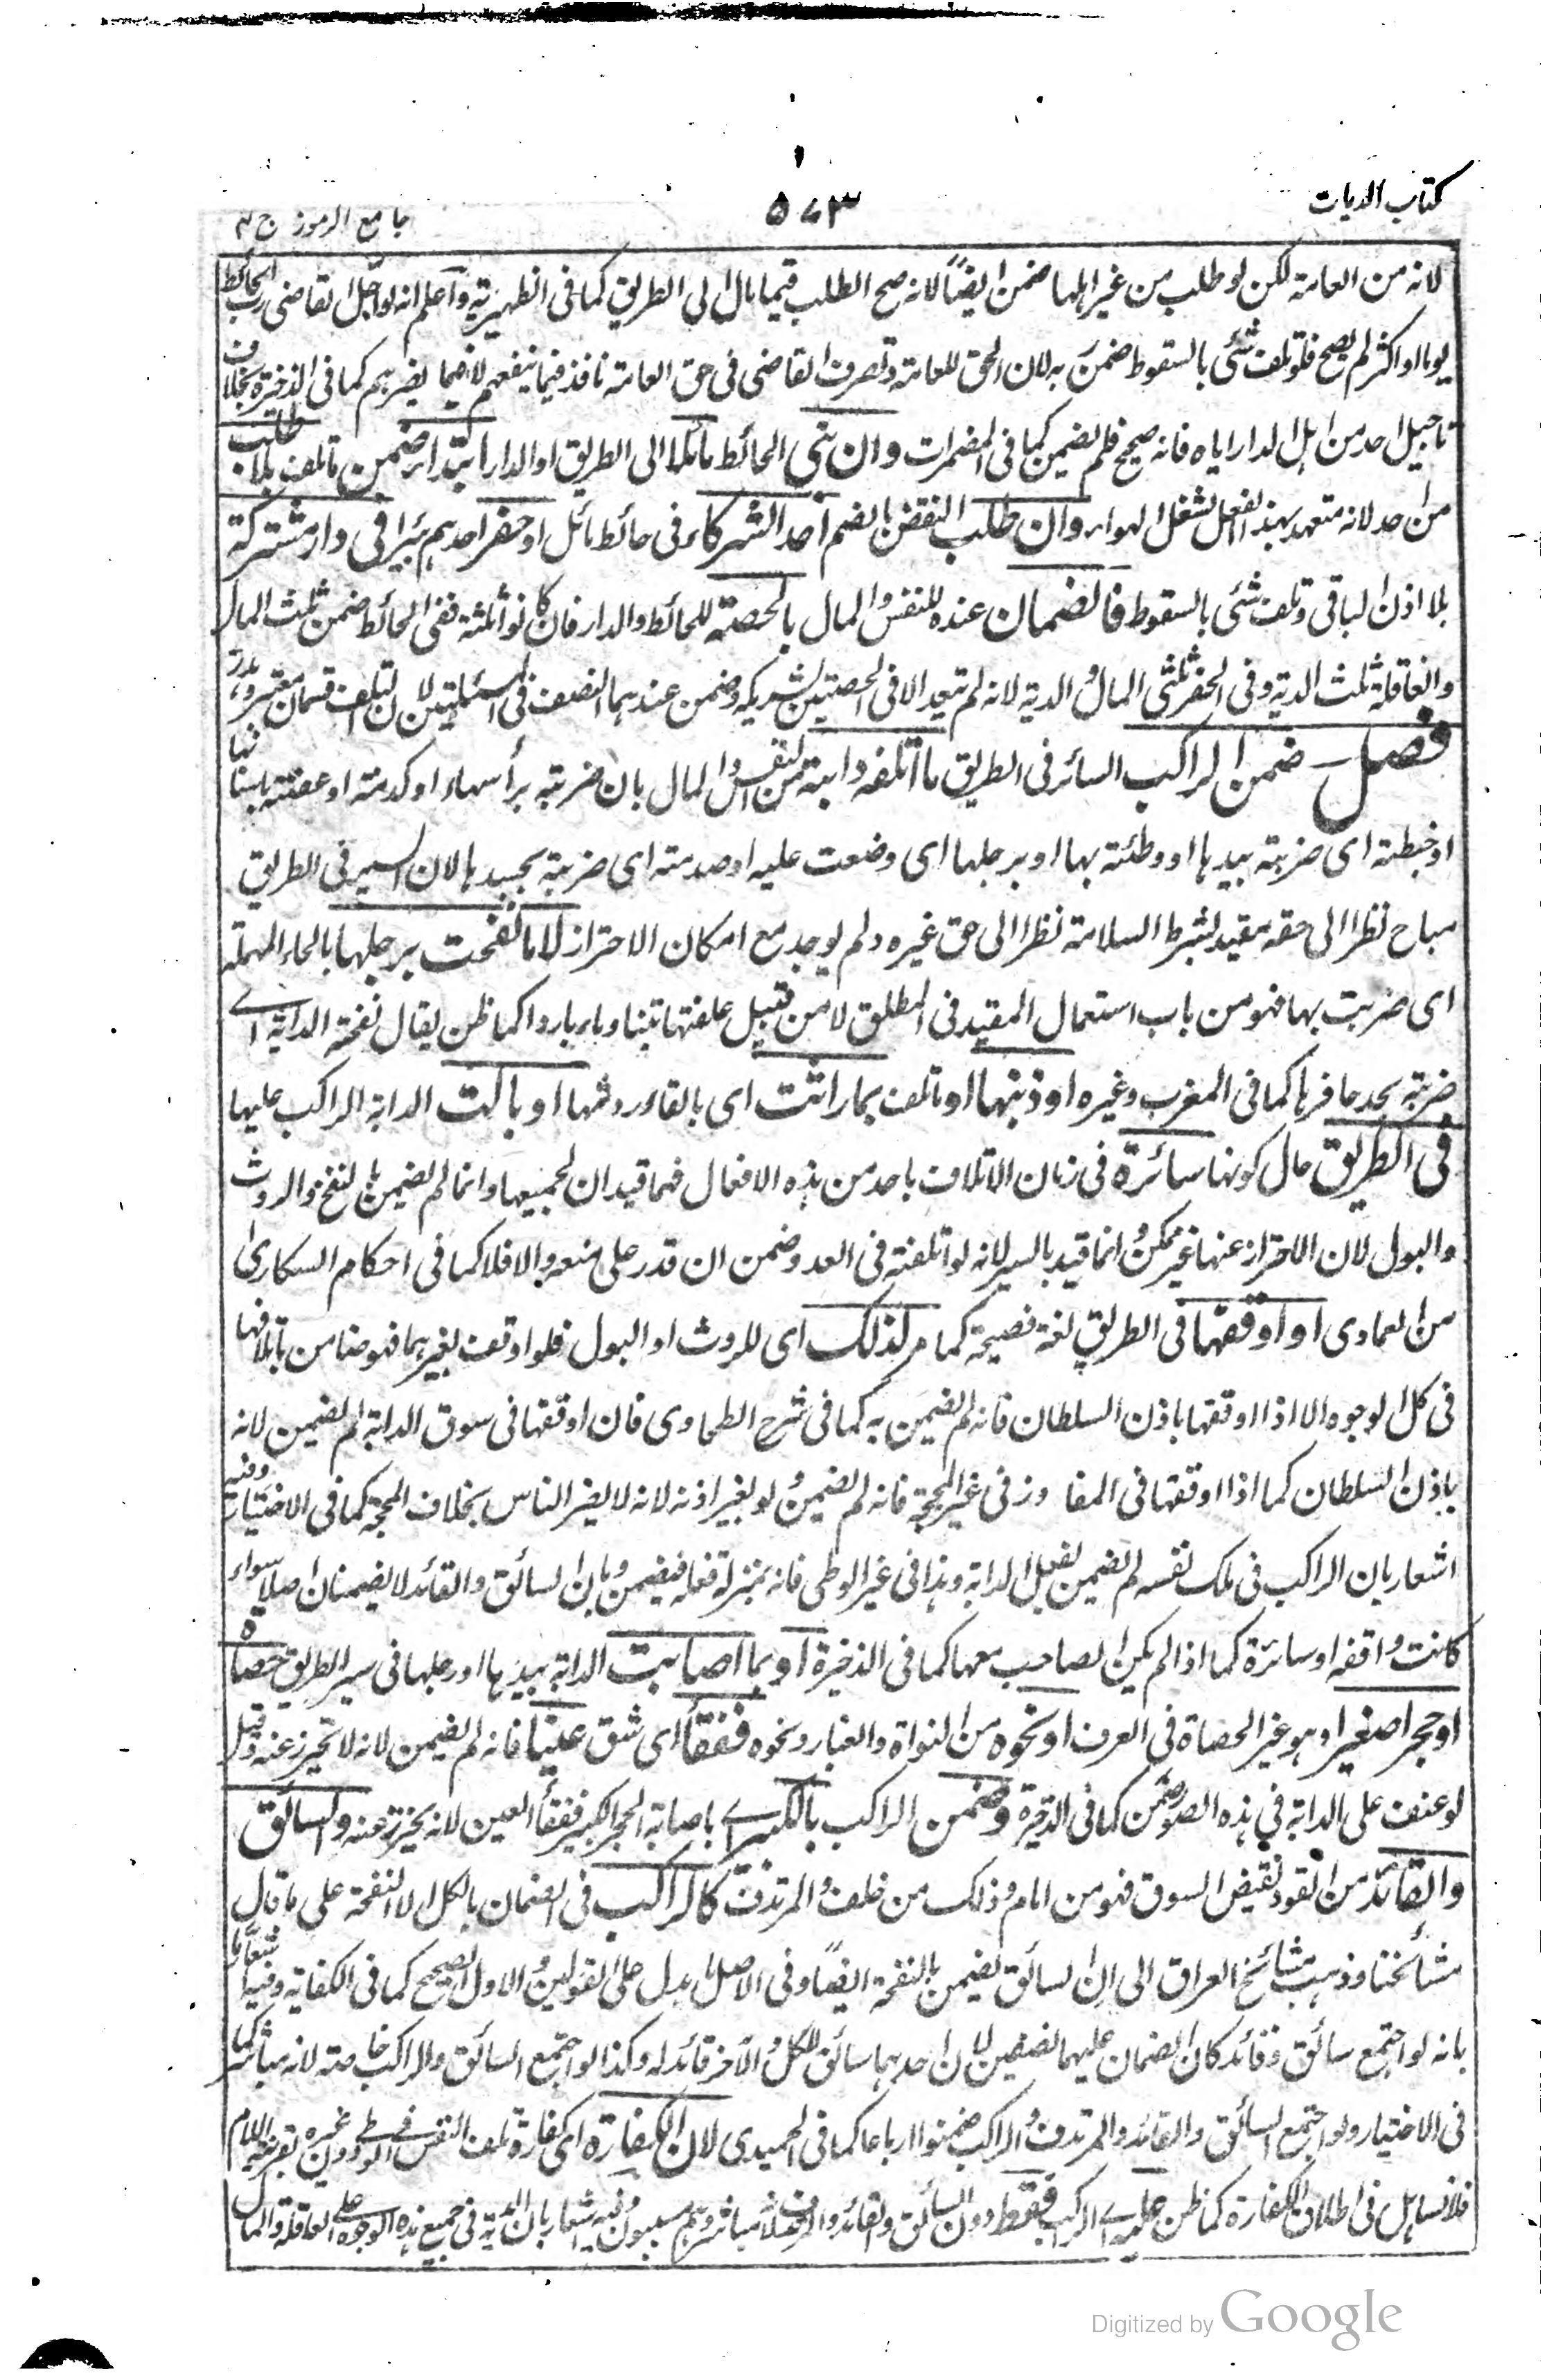 كتاب الديات
٥٧٣
جامع الرموز ج ٢
لانه من العامة لكن لو طلب من غير اهلها ضمن ايضاً لانه صح الطلب فيما مال الى الطريق كما فى الظهيرية واعلم انه لو اجل القاضى رب الحائط
يوما او اكثر لم يصح فلو تلف شئ بالسقوط ضمن به لان الحق للعامة وتصرف القاضى فى حق العامة نافذ فيما ينفعهم لا فيما يضرهم كما فى الذخيرة بخلاف
تاجيل احد من اهل الدار اياه فانه صحيح فلم يضمن كما فى المضمرات وان بنى الحائط مائلا الى الطريق او الدار ابتداء ضمن ما تلف بلا طلب
من احد لانه متعمد بهذا الفعل لشغل الهواء وان طلب النقض بالضم احد الشركاء فى حائط مائل او حفر احدهم بئرا فى دار مشتركة
بلا اذن الباقى وتلف شئ بالسقوط فالضمان عنده للنفس والمال بالحصة للحائط والدار فان كانوا ثلثة ففى الحائط ضمن ثلث المال
والعاقلة ثلث الدية وفى الحفر ثلثى المال والدية لانه لم يتعد الا فى الحصتين لشريكه وضمن عندهما النصف فى المسئلتين لان التلف قسمان معتبر وهدر
فصل ضمن الراكب السائر فى الطريق ما اتلفه دابته من النفس والمال بان ضربته برأسها او كدمته او عضته باسنانها
او خبطته اى ضربته بيدها او وطئته بها او برجلها اى وضعت عليه او صدمته اى ضربته بجسدها لان السير فى الطريق
مباح نظرا الى حقه مقيد بشرط السلامة نظرا الى حق غيره ولم يوجد مع امكان الاحتراز لا ما نفحت برجلها بالحاء المهملة
اى ضربت بها فهو من باب استعمال المقيد فى المطلق لا من قبيل علفتها تبنا وماء باردا كما ظن يقال نفحته الدابة اى
ضربته بحد حافرها كما فى المغرب وغيره او ذنبها او تلف بما راثت اى بالقاء روثها او بالت الدابة الراكب عليها
فى الطريق حال كونها سائرة فى زمان الاتلاف باحد من هذه الافعال فهما قيدان لجميعها وانما لم يضمن بالنفح والروث
والبول لان الاحتراز عنها غير ممكن وانما قيد بالسير لانه لو اتلفته فى العدو ضمن ان قدر على منعه والا فلا كما فى احكام السكارى
من العمادى او اوقفها فى الطريق لغة فصيحة كما مر لذلك اى للروث او البول فلو اوقف لغيرهما فهو ضامن باتلافها
فى كل الوجوه الا اذا اوقفها باذن السلطان فانه لم يضمن به كما فى شرح الطحاوى فان اوقفها فى سوق الدابة لم يضمن لانه
باذن السلطان كما اذا اوقفها فى المفاوز فى غير المحجة فانه لم يضمن ولو بغير اذنه لانه لا يضر الناس بخلاف المحجة كما فى الاختيار وفيه
اشعار بان الراكب فى ملك نفسه لم يضمن بفعل الدابة وهذا فى غير الوطى فانه بمنزلة فعله فيضمن وبان السائق والقائد لا يضمنان اصلا سواء
كانت واقفه او سائرة كما اذا لم يكن الصاحب معها كما فى الذخيرة او بما اصابت الدابة بيدها او رجلها فى سير الطريق حصاة
او حجرا صغيرا وهو غير الحصاة فى العرف او نحوه من النواة والغبار ونحوه ففقأ اى شق عينا فانه لم يضمن لانه لا تحرز عنه وقيل
لو عنف على الدابة فى هذه الصور ضمن كما فى الذخيرة وضمن الراكب بالكبير اى باصابة الحجر الكبير ففقأ العين لانه يحترز عنه والسائق
والقائد من القود نقيض السوق فهو من امام وذلك من خلف والمرتدف كالراكب فى الضمان بالكل الا النفحة على ما قال
مشائخنا وذهب مشائخ العراق الى ان السائق يضمن بالنفحة ايضا وفى الاصل ما يدل على القولين والاول الصحيح كما فى الكفاية وفيه اشعار
بانه لو اجتمع سائق وقائد كان الضمان عليهما نصفين لان احدهما سائق للكل والآخر قائد له وكذا لو اجتمع السائق والراكب خاصته لانه مباشر كما
فى الاختيار ولو اجتمع السائق والقائد والمرتدف والراكب ضمنوا ارباعا كما فى الحميدى لان الكفارة اى كفارة تلف النفس فى الوطى دون غيره بقرينة اللام
فلا تساهل فى اطلاق الكفارة كما ظن عليه اى الراكب فقط دون السائق والقائد والمرتدف لانه مباشر وهم مسببون وفيه اشعار بان الدية فى جميع هذه الوجوه على العاقلة والمال
Digitized by Google